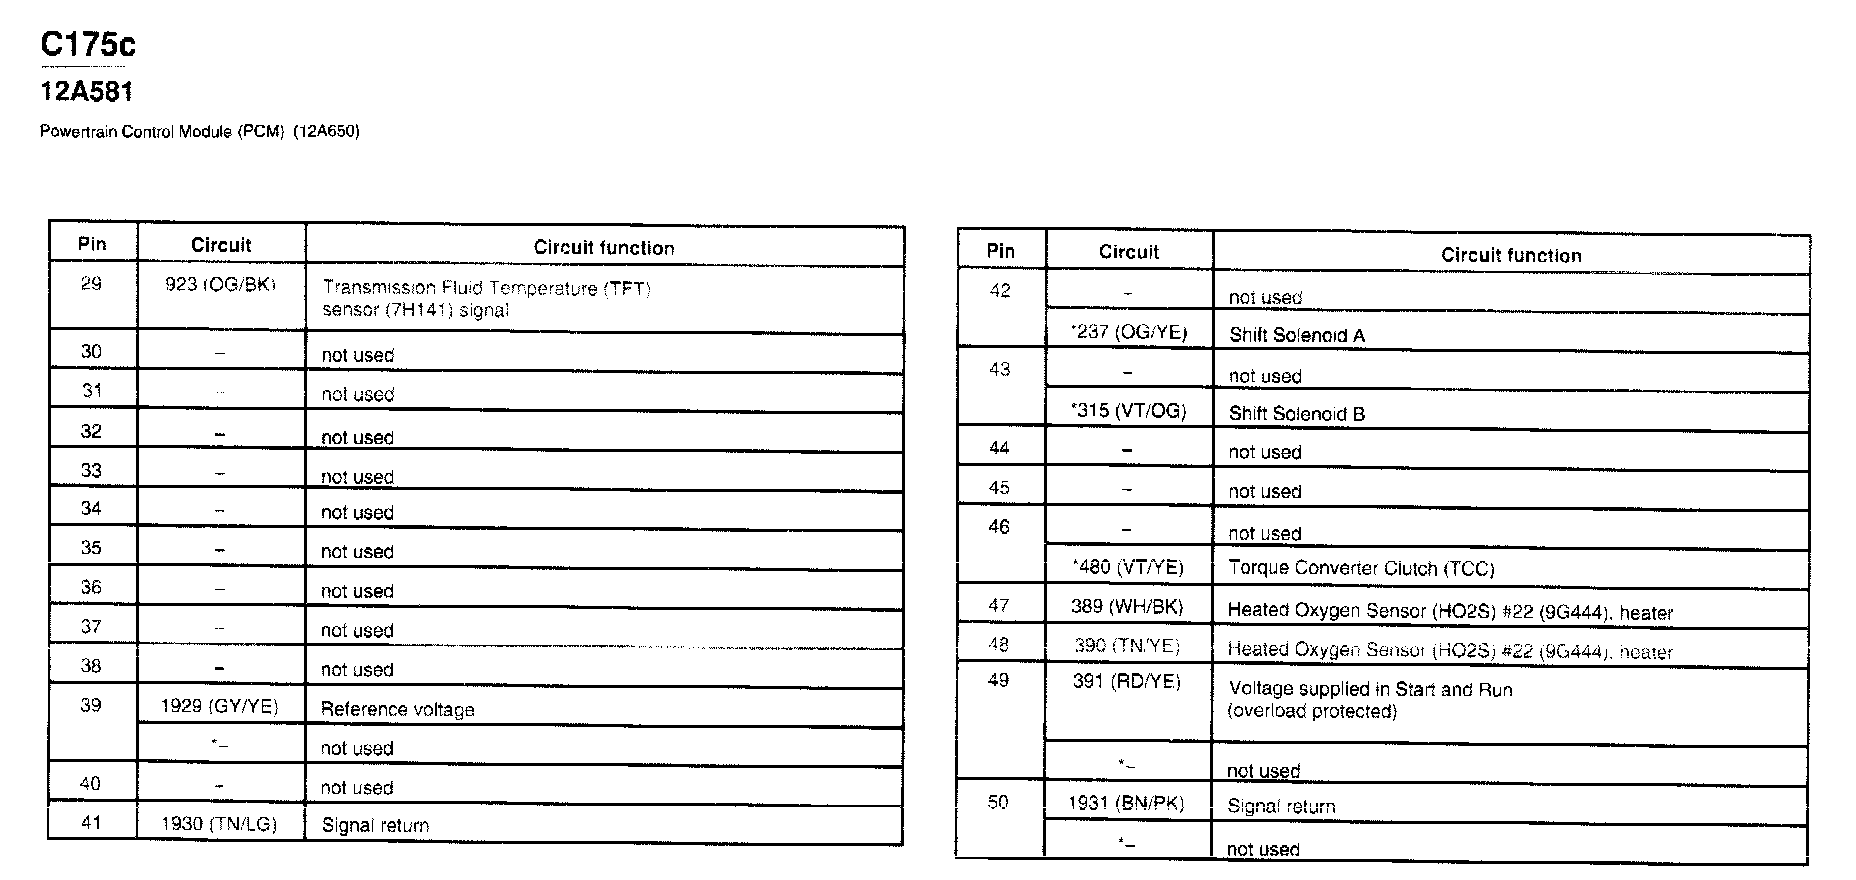 C175c
12A581
Powertrain Control Module (PCM) (12A650)
Pin Circuit Circuit function
29 923 (OG/BK) Transmission Fluid Temperature (TFT)
sensor (7H141) signal
30 – not used
31 – not used
32 – not used
33 – not used
34 – not used
35 – not used
36 – not used
37 – not used
38 – not used
39 1929 (GY/YE) Reference voltage
*– not used
40 – not used
41 1930 (TN/LG) Signal return
Pin Circuit Circuit function
42 – not used
*237 (OG/YE) Shift Solenoid A
43 – not used
*315 (VT/OG) Shift Solenoid B
44 – not used
45 – not used
46 – not used
*480 (VT/YE) Torque Converter Clutch (TCC)
47 389 (WH/BK) Heated Oxygen Sensor (HO2S) #22 (9G444), heater
48 390 (TN/YE) Heated Oxygen Sensor (HO2S) #22 (9G444), heater
49 391 (RD/YE) Voltage supplied in Start and Run
(overload protected)
*– not used
50 1931 (BN/PK) Signal return
*– not used